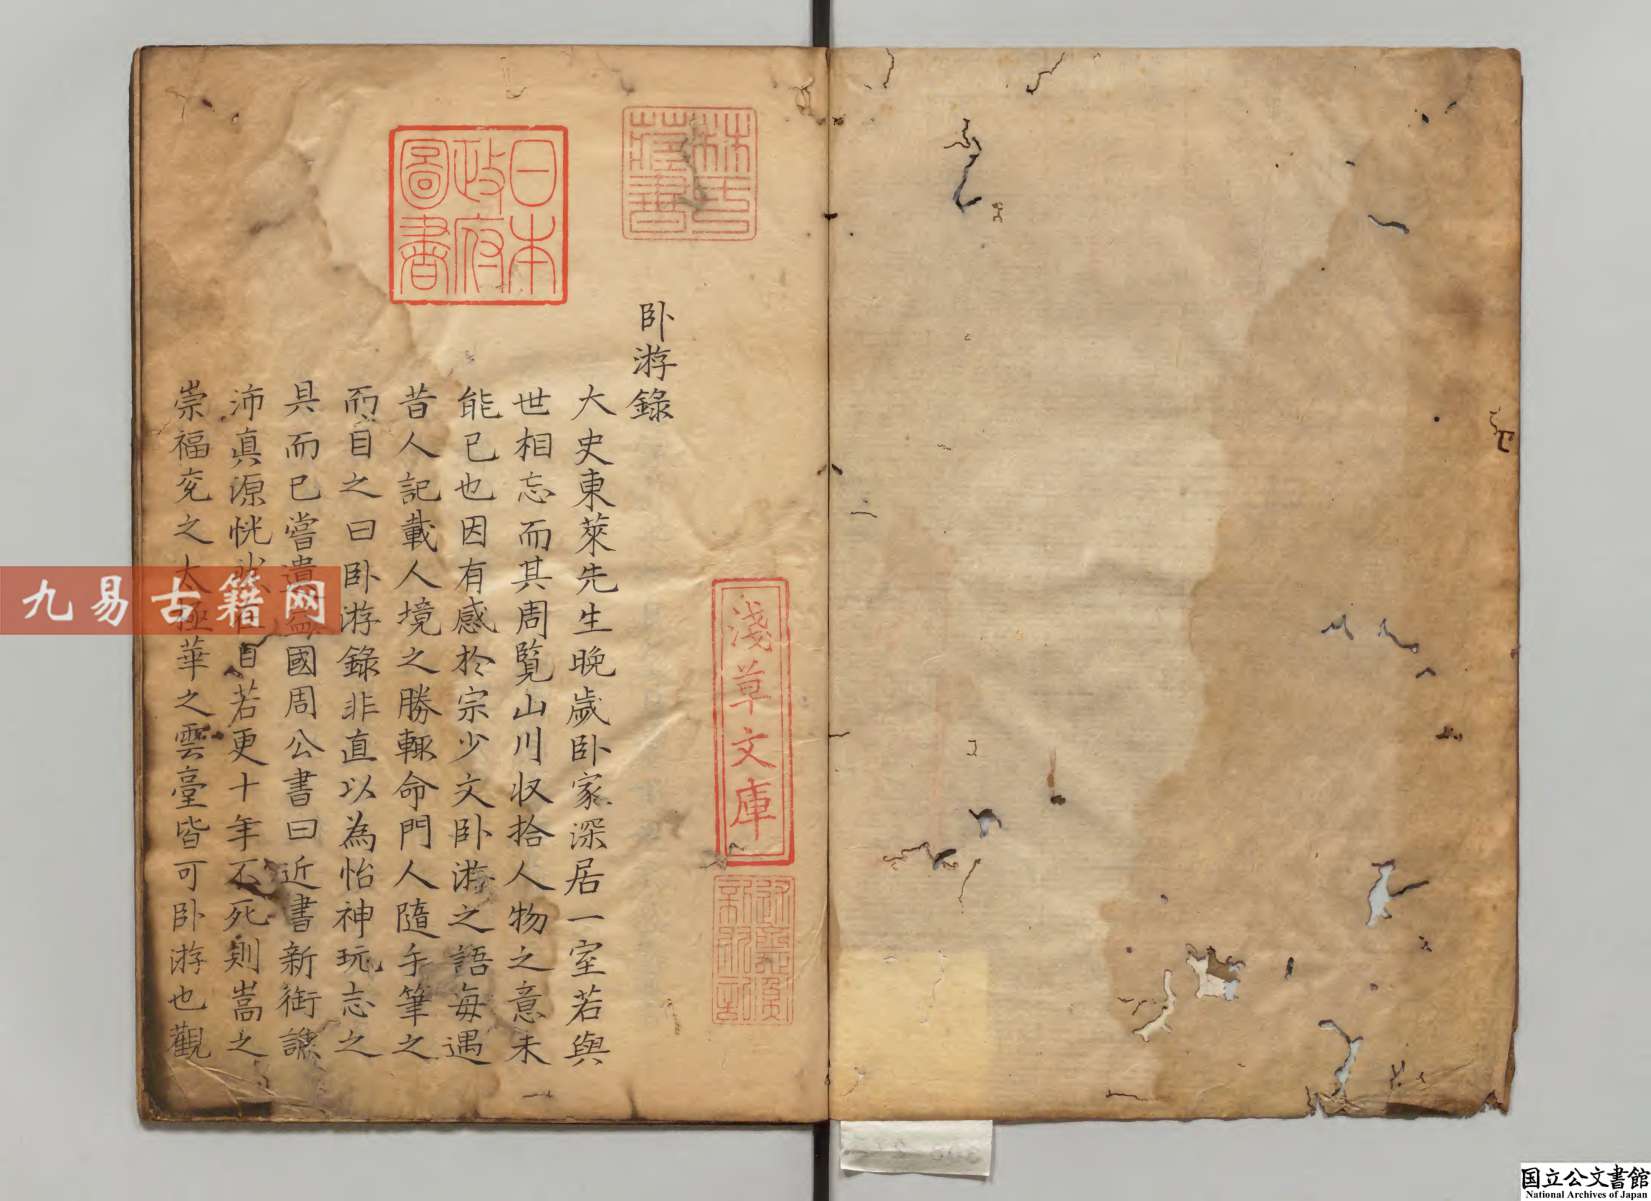 卧游錄
大史東萊先生晚歲卧家深居一室若與
世相忘而其周覽山川収拾人物之意未
能已也因有感於宗少文卧游之語每遇
昔人記載人境之勝輒命門人隨手筆之
而目之曰卧游錄非直以為怡神玩志之
具而已嘗遺益國周公書曰近書新銜譙
沛真源恍然自若更十年不死則嵩之
崇福兗之太極華之雲臺皆可卧游也觀
日本政府圖書
林氏藏書
淺草文庫
九易古籍网
国立公文書館
National Archives of Japan